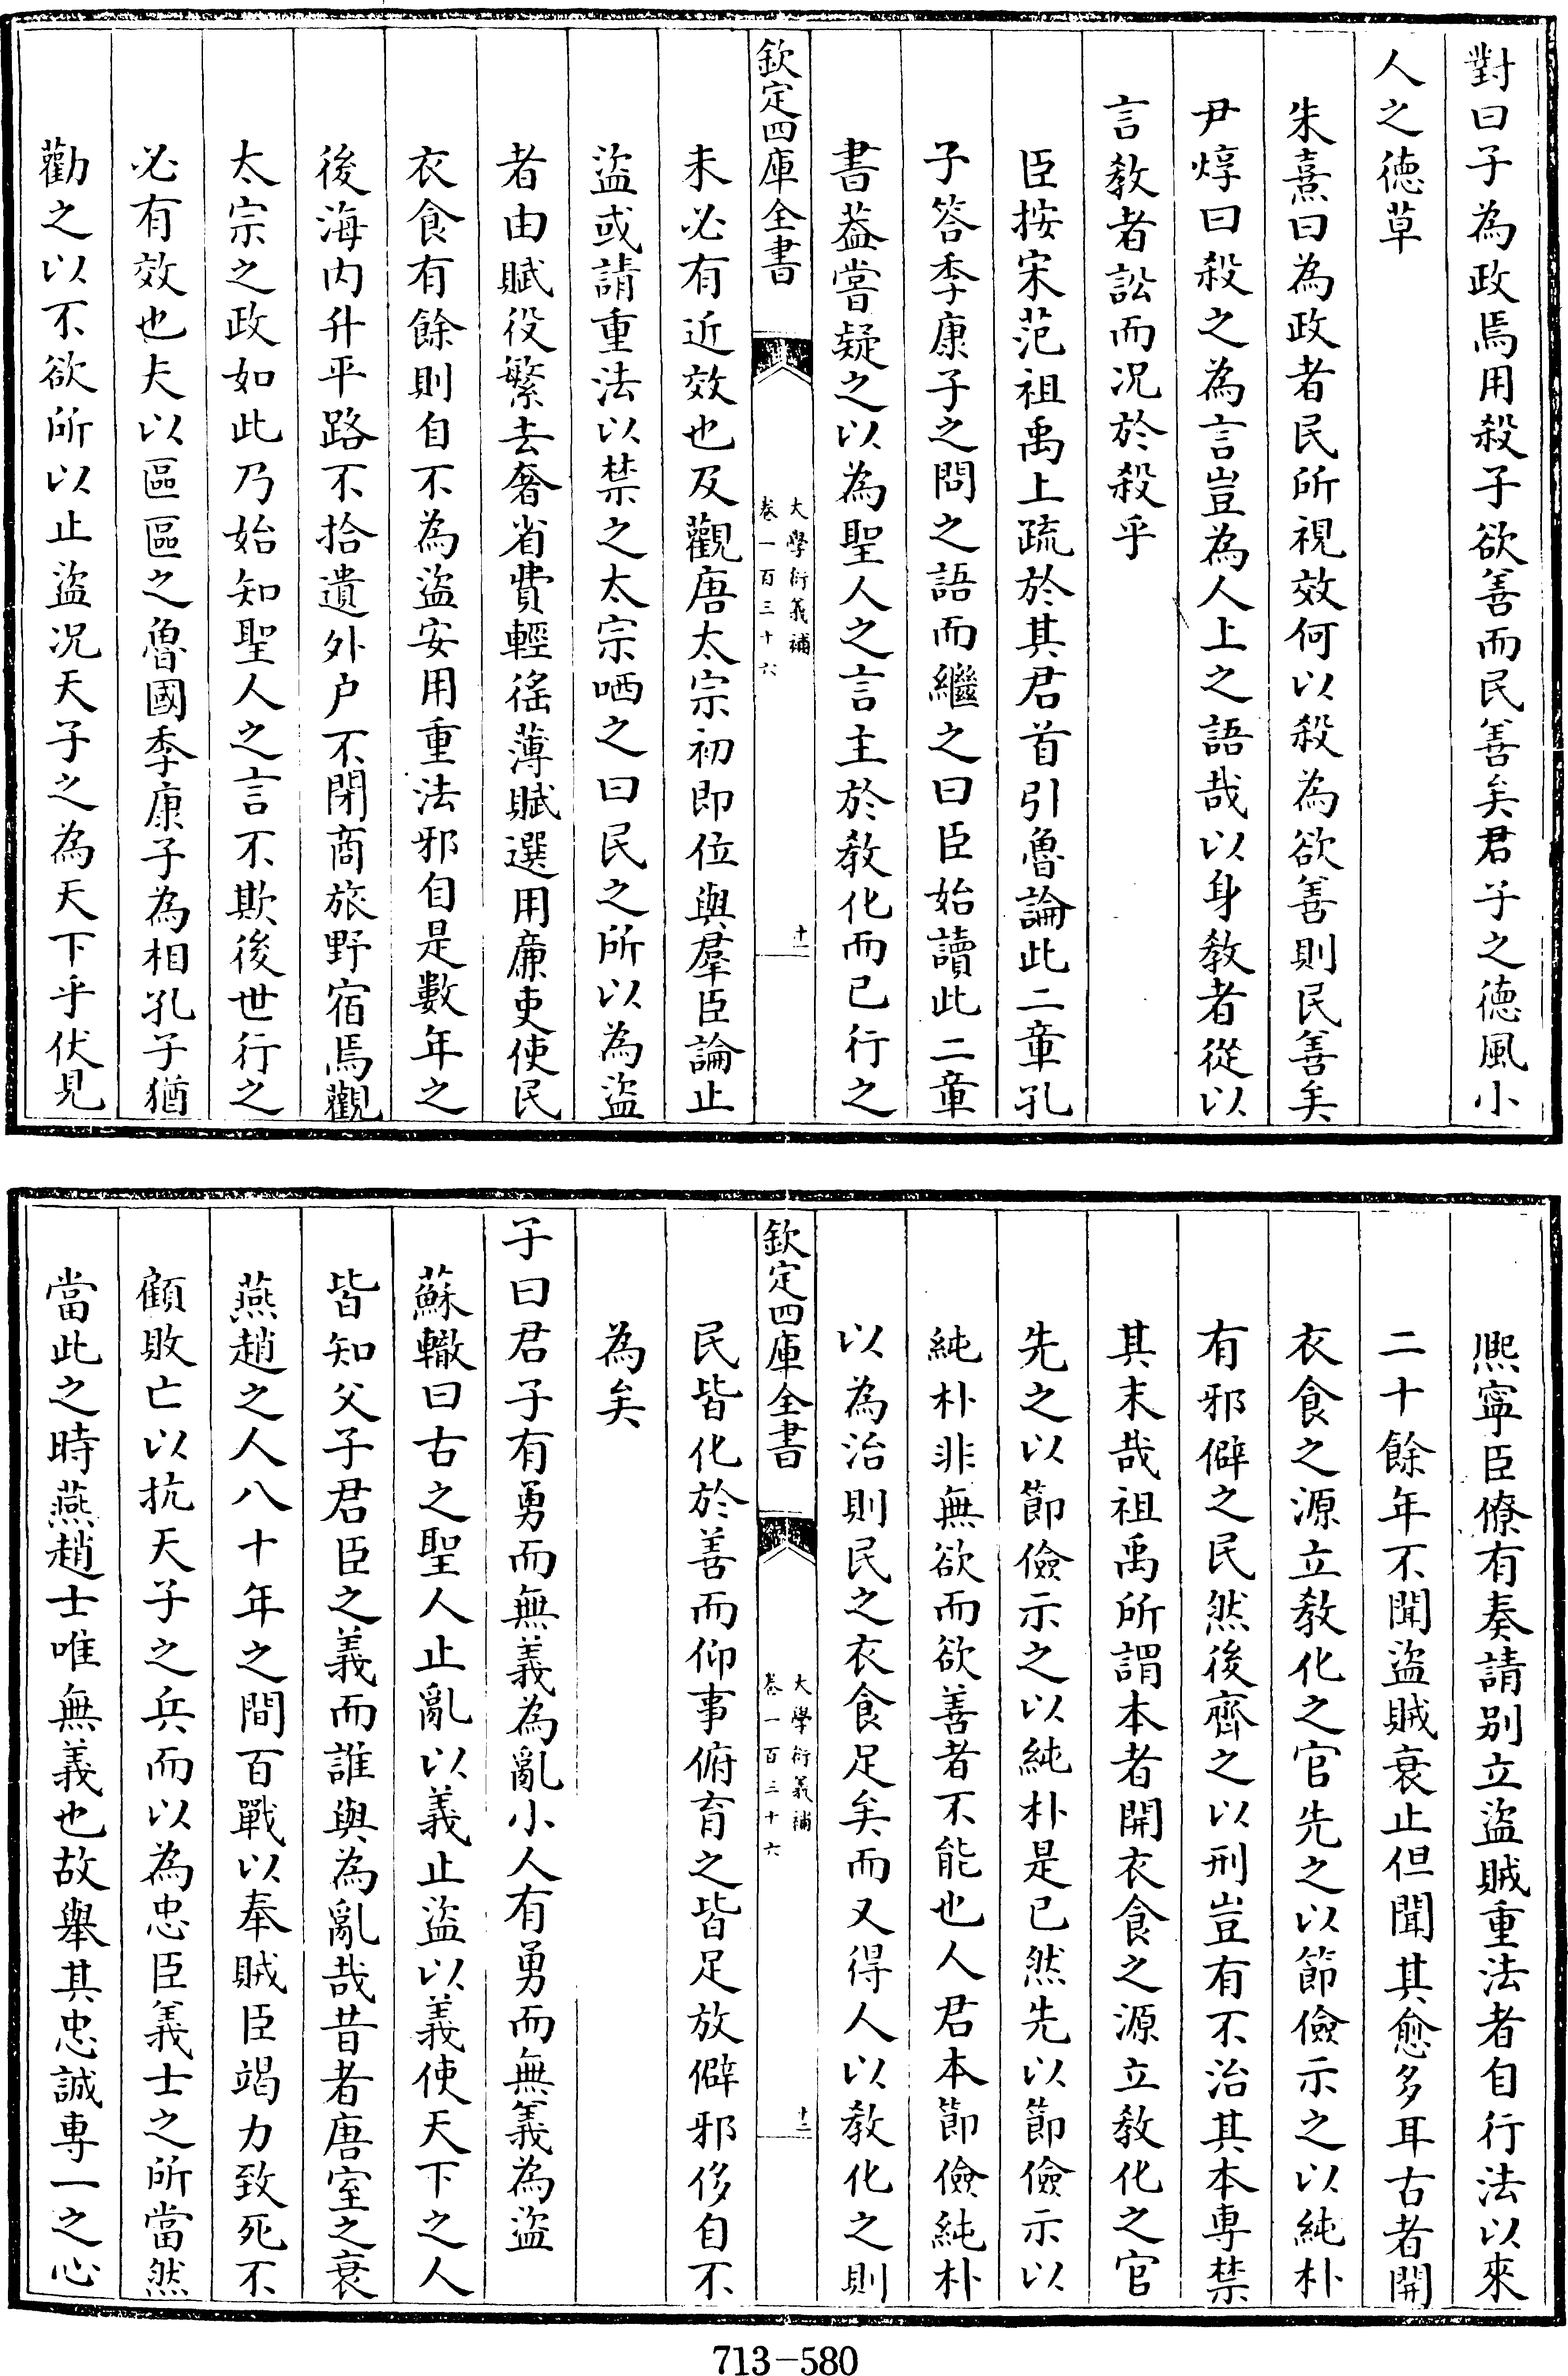 對曰子為政焉用殺子欲善而民善矣君子之德風小
人之德草
朱熹曰為政者民所視效何以殺為欲善則民善矣
尹焞曰殺之為言豈為人上之語哉以身教者從以
言教者訟而况於殺乎
臣按宋范祖禹上疏於其君首引魯論此二章孔
子答季康子之問之語而繼之曰臣始讀此二章
書葢嘗疑之以為聖人之言主於教化而已行之
欽定四庫全書
大學衍義補
卷一百三十六
十一
未必有近效也及觀唐太宗初即位與羣臣論止
盜或請重法以禁之太宗哂之曰民之所以為盜
者由賦役繁去奢省費輕徭薄賦選用廉吏使民
衣食有餘則自不為盜安用重法邪自是數年之
後海内升平路不拾遺外户不閉商旅野宿焉觀
太宗之政如此乃始知聖人之言不欺後世行之
必有效也夫以區區之魯國季康子為相孔子猶
勸之以不欲所以止盜况天子之為天下乎伏見
熈寧臣僚有奏請别立盜賊重法者自行法以來
二十餘年不聞盜賊衰止但聞其愈多耳古者開
衣食之源立教化之官先之以節儉示之以純朴
有邪僻之民然後齊之以刑豈有不治其本專禁
其末哉祖禹所謂本者開衣食之源立教化之官
先之以節儉示之以純朴是已然先以節儉示以
純朴非無欲而欲善者不能也人君本節儉純朴
以為治則民之衣食足矣而又得人以教化之則
欽定四庫全書
大學衍義補
卷一百三十六
十二
民皆化於善而仰事俯育之皆足放僻邪侈自不
為矣
子曰君子有勇而無義為亂小人有勇而無義為盜
蘇轍曰古之聖人止亂以義止盜以義使天下之人
皆知父子君臣之義而誰與為亂哉昔者唐室之衰
燕趙之人八十年之間百戰以奉賊臣竭力致死不
顧敗亡以抗天子之兵而以為忠臣義士之所當然
當此之時燕趙士唯無義也故舉其忠誠専一之心
713-580